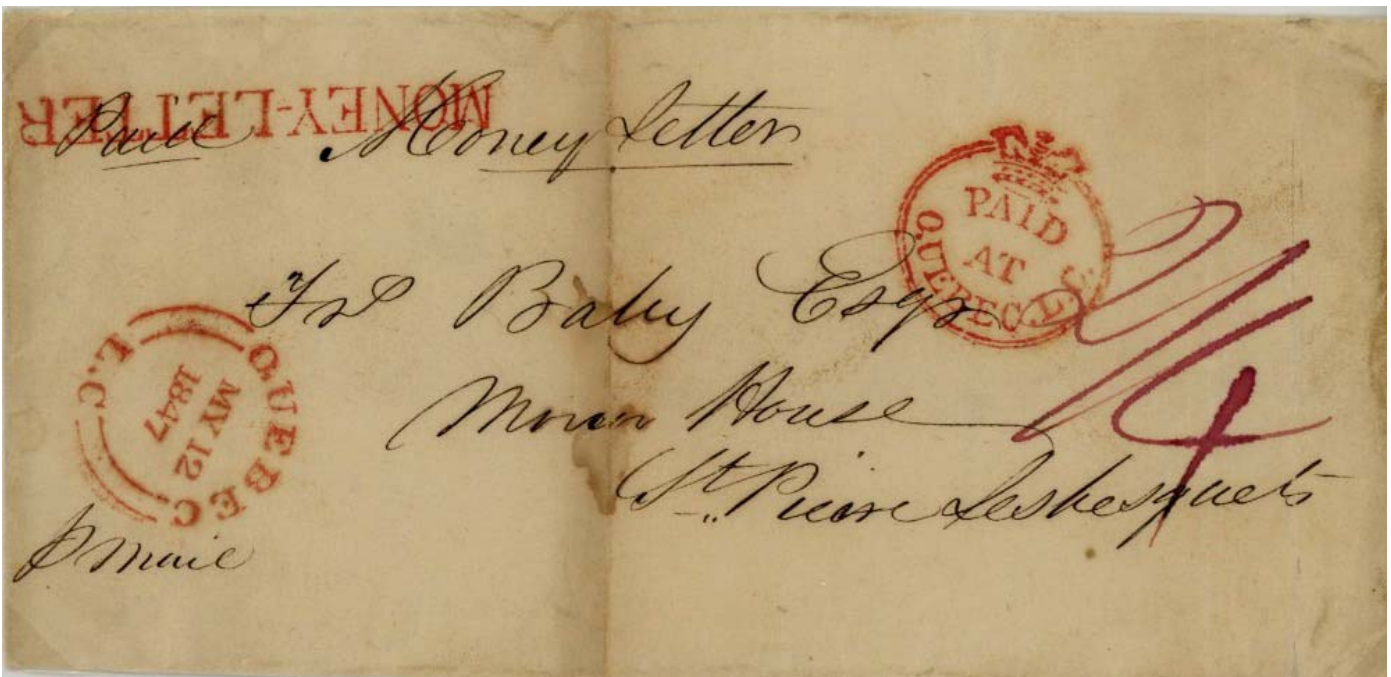 MONEY-LETTER
Paid Money Letter
PAID
AT
QUEBEC.L.C.
2/4
Frs Baby Esqr
Manor House
St. Pierre Lesbesquets
QUEBEC
L.C
MY 12
1847
P mail